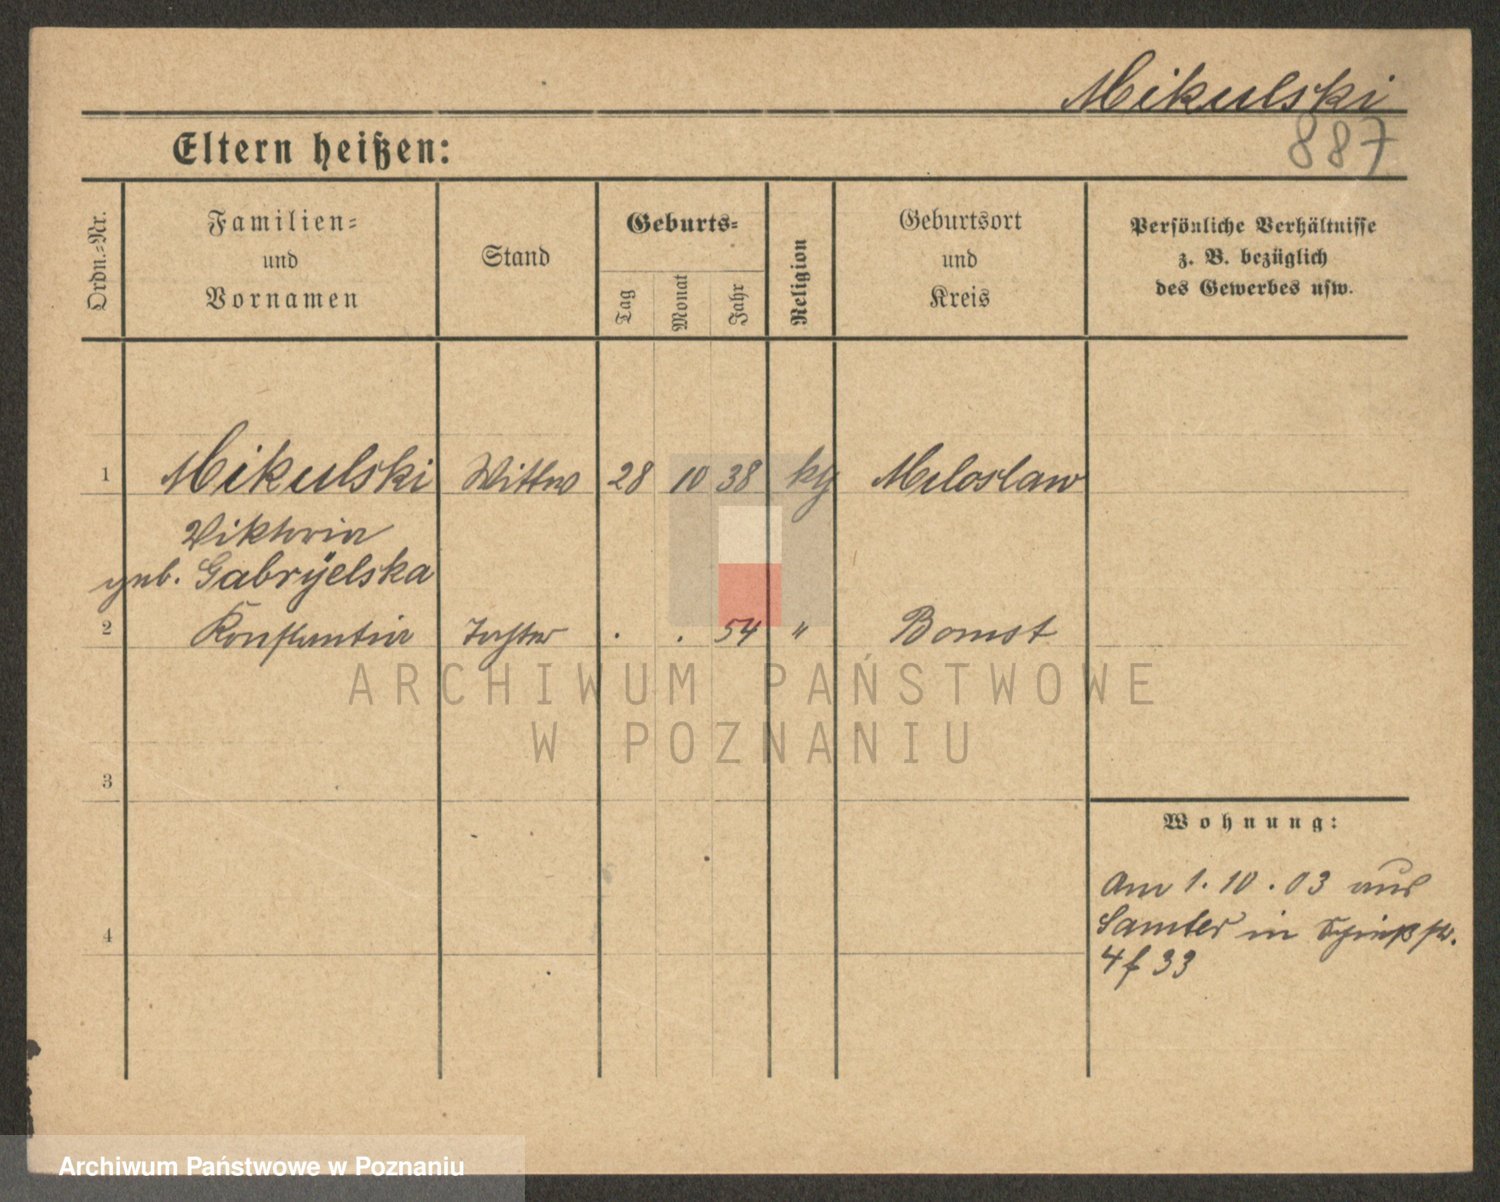 Mikulski
887
Eltern heißen:
Ordn.-Nr.
Familien-
und
Vornamen
Stand
Geburts-
Tag
Monat
Jahr
Religion
Geburtsort
und
Kreis
Persönliche Verhältnisse
z. B. bezüglich
des Gewerbes usw.
1 Mikulski Wittwe 28 10 38 kg Miloslaw
Viktoria
geb. Gabryelska
2 Konstantia Tochter . . 54 " Bomst
3
4
Wohnung:
Am 1.10.03 aus
Samter in
4 f 33
ARCHIWUM PAŃSTWOWE
W POZNANIU
Archiwum Państwowe w Poznaniu